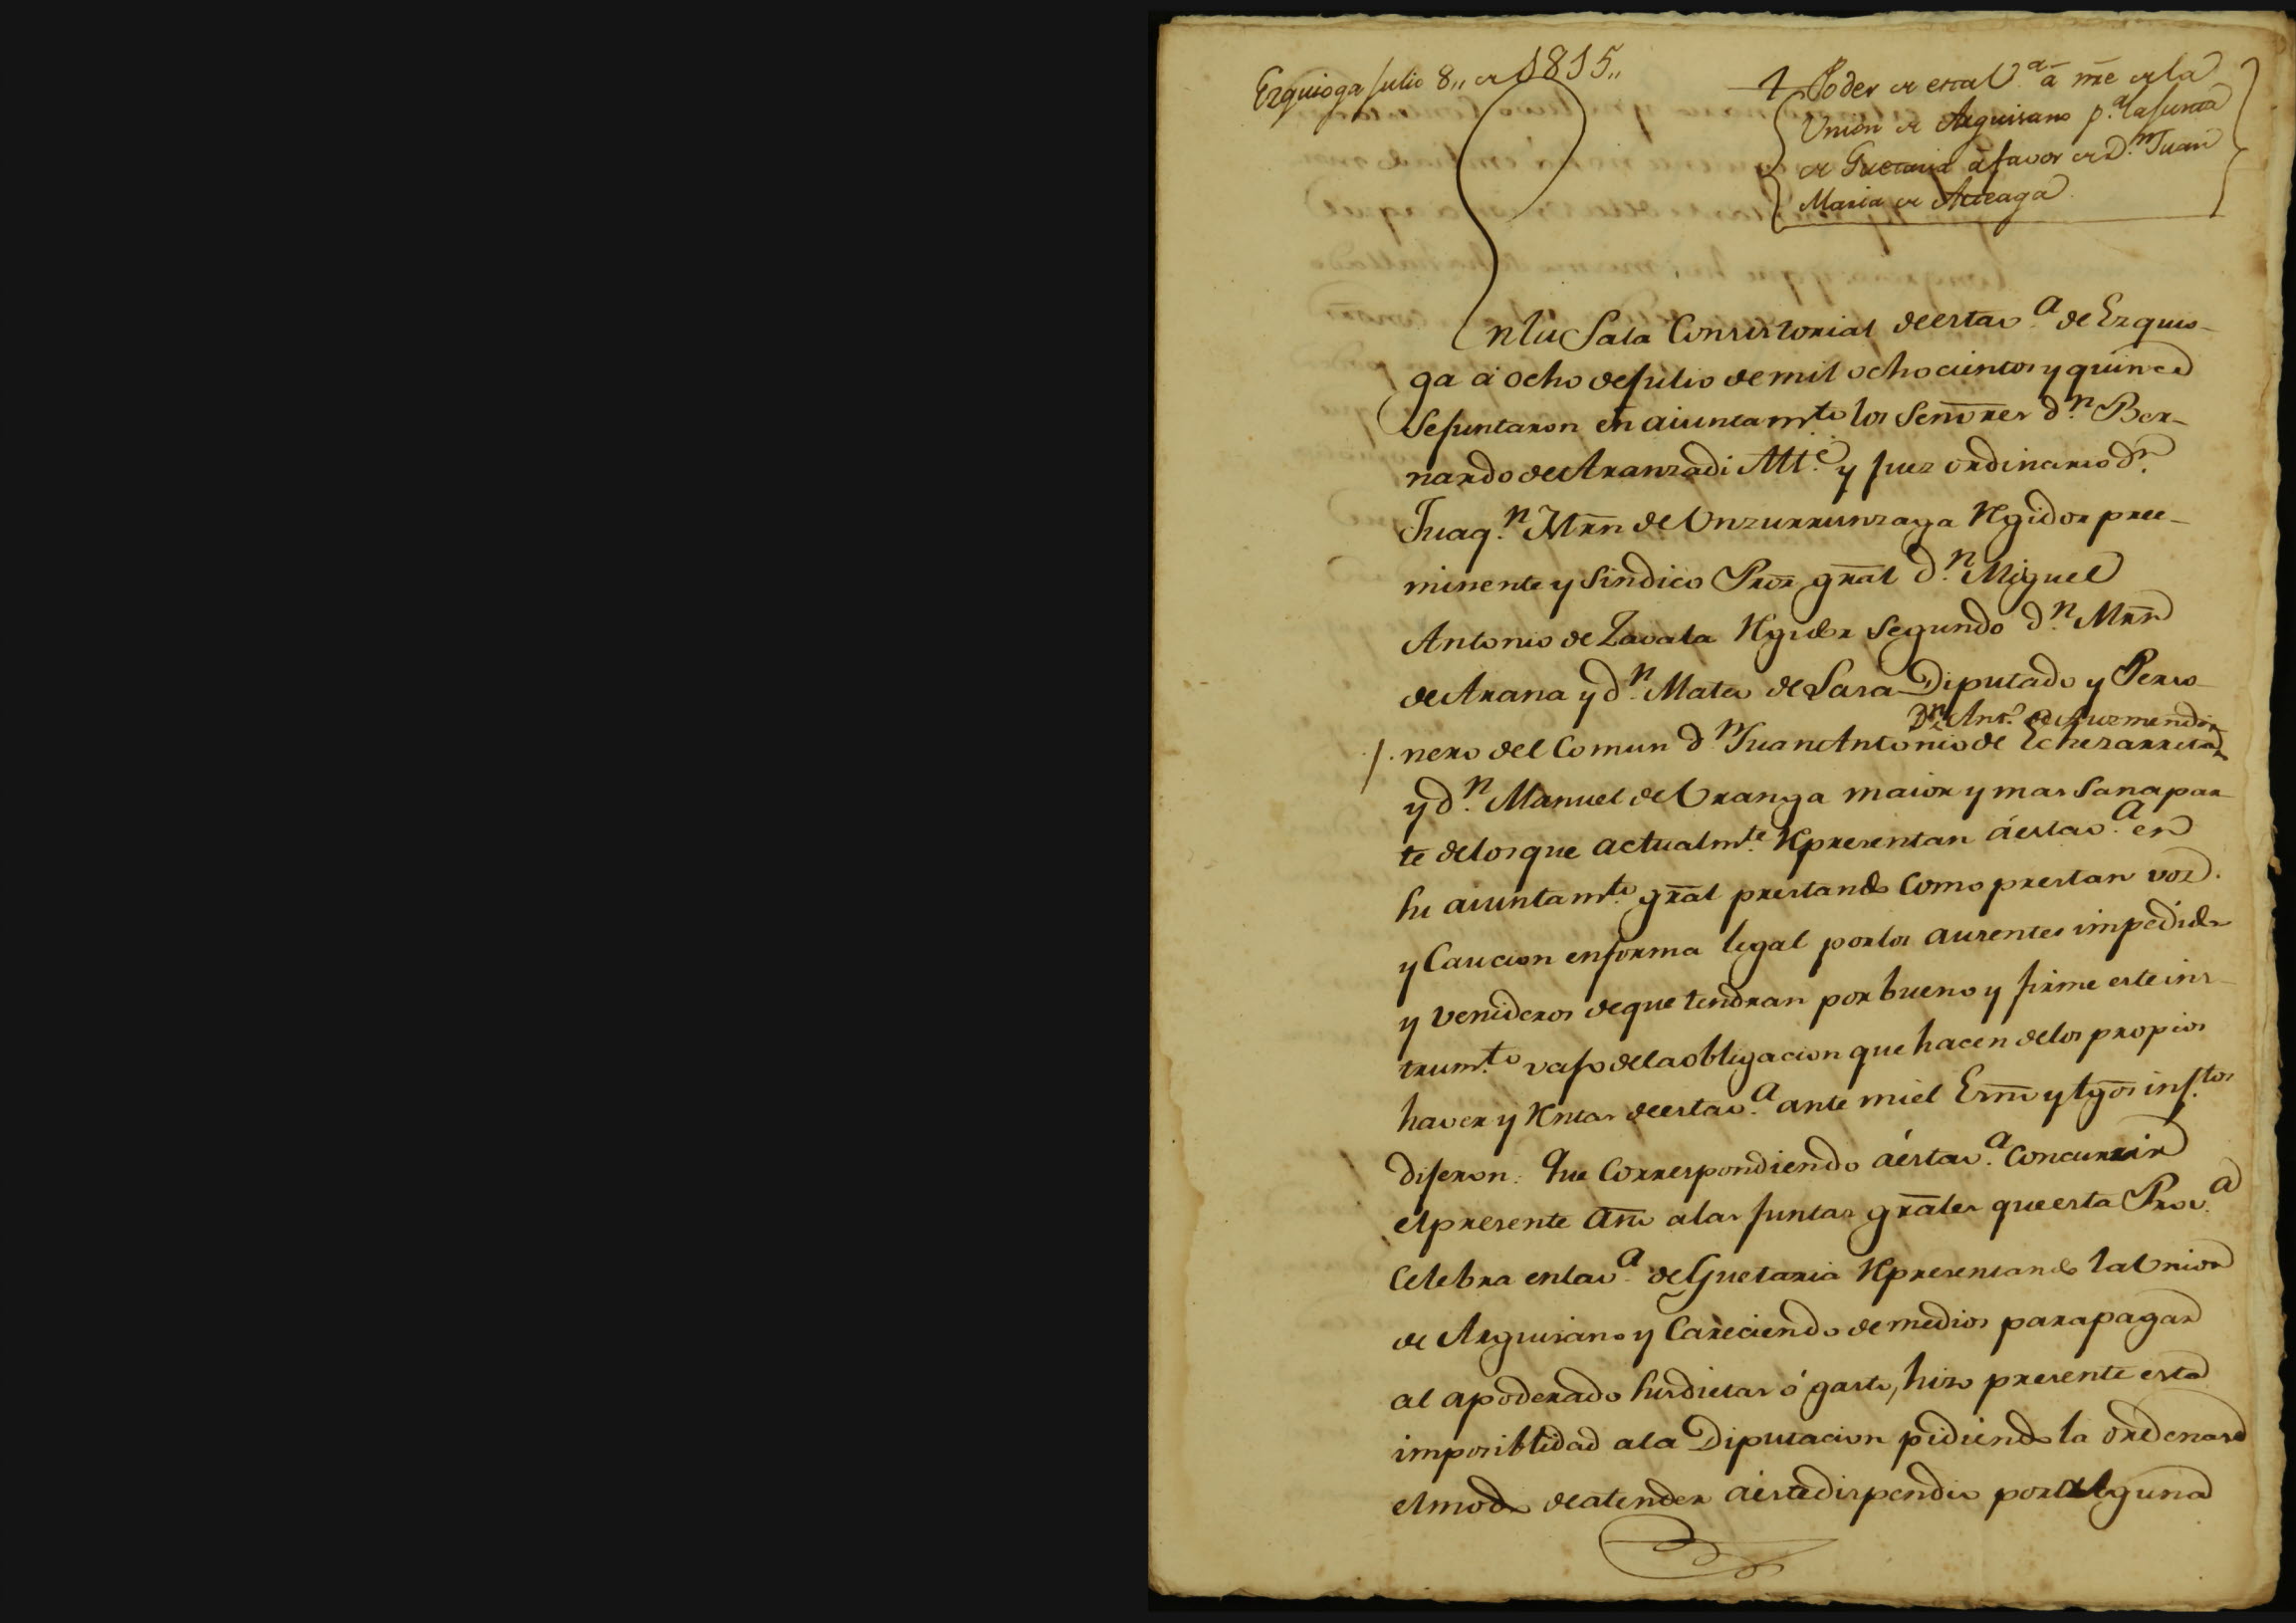 Ezquioga Julio 8,, de 1815,,
1 Poder de esta V.ª á nre de la
Union de Arguisano p.ª la Junta
de Guetaria á favor de D.n Juan
Maria de Arteaga
En la Sala Consistorial de esta v.ª de Ezquio-
ga á ocho de Julio de mil ochocientos y quince
se Juntaron en aiuntam.to los Señores d.n Ber-
nardo de Aranzadi Alt.e y Juez ordinario d.n
Juaq.n Mrn de Unzurrunzaga Rgidor pree-
minente y Sindico Pror gral d.n Miguel
Antonio de Zavala Rgidor Segundo d.n Mrn
de Arana y d.n Mateo de Sasa Diputado y Perso
D.n Ant.o de Auzmendi
nero del Comun d.n Juan Antonio de Echezarreta
y d.n Manuel de Uranga maior y mas sana par-
te de los que actualm.te Rpresentan á esta v.ª en
su aiuntam.to gral prestando como prestan voz
y Caucion en forma legal por los ausentes impedidos
y venideros de que tendran por bueno y firme este ins-
trum.to vajo de la obligacion que hacen de los propios
haver y Rntas de esta v.ª ante mi el Esno y tgos infs.tos
dijeron: Que Correspondiendo á esta v.ª concurrir
el presente año a las Juntas grales que esta Prov.ª
Celebra en la v.ª de Guetaria Rpresentando la Union
de Arguisano y Careciendo de medios para pagar
al apoderado sus dietas ó gasto, hizo presente esta
imposiblidad a la Diputacion pidiendo la ordenase
el modo de atender á este dispendio por alguna